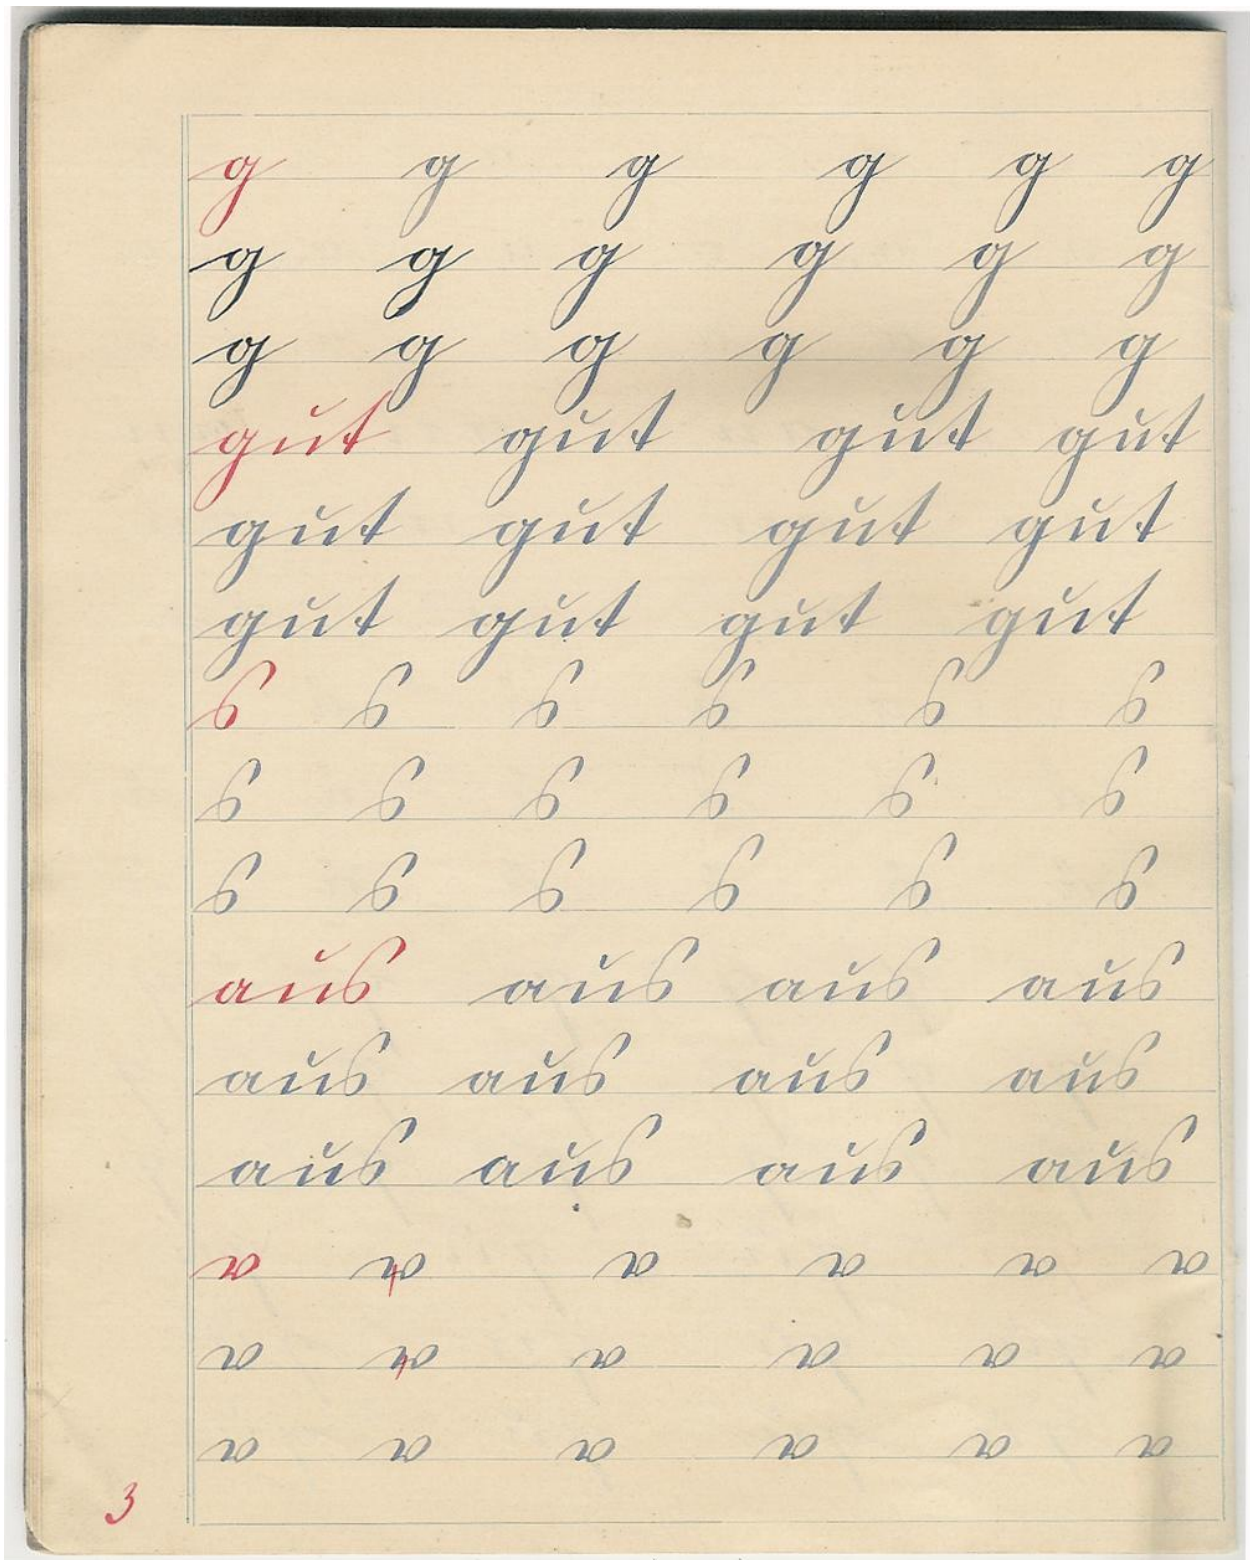 g g g g g g
g g g g g g
g g g g g g
gut gut gut gut
gut gut gut gut
gut gut gut gut
s s s s s s
s s s s s s
s s s s s s
aus aus aus aus
aus aus aus aus
aus aus aus aus
v v v v v v
v v v v v v
v v v v v v
3